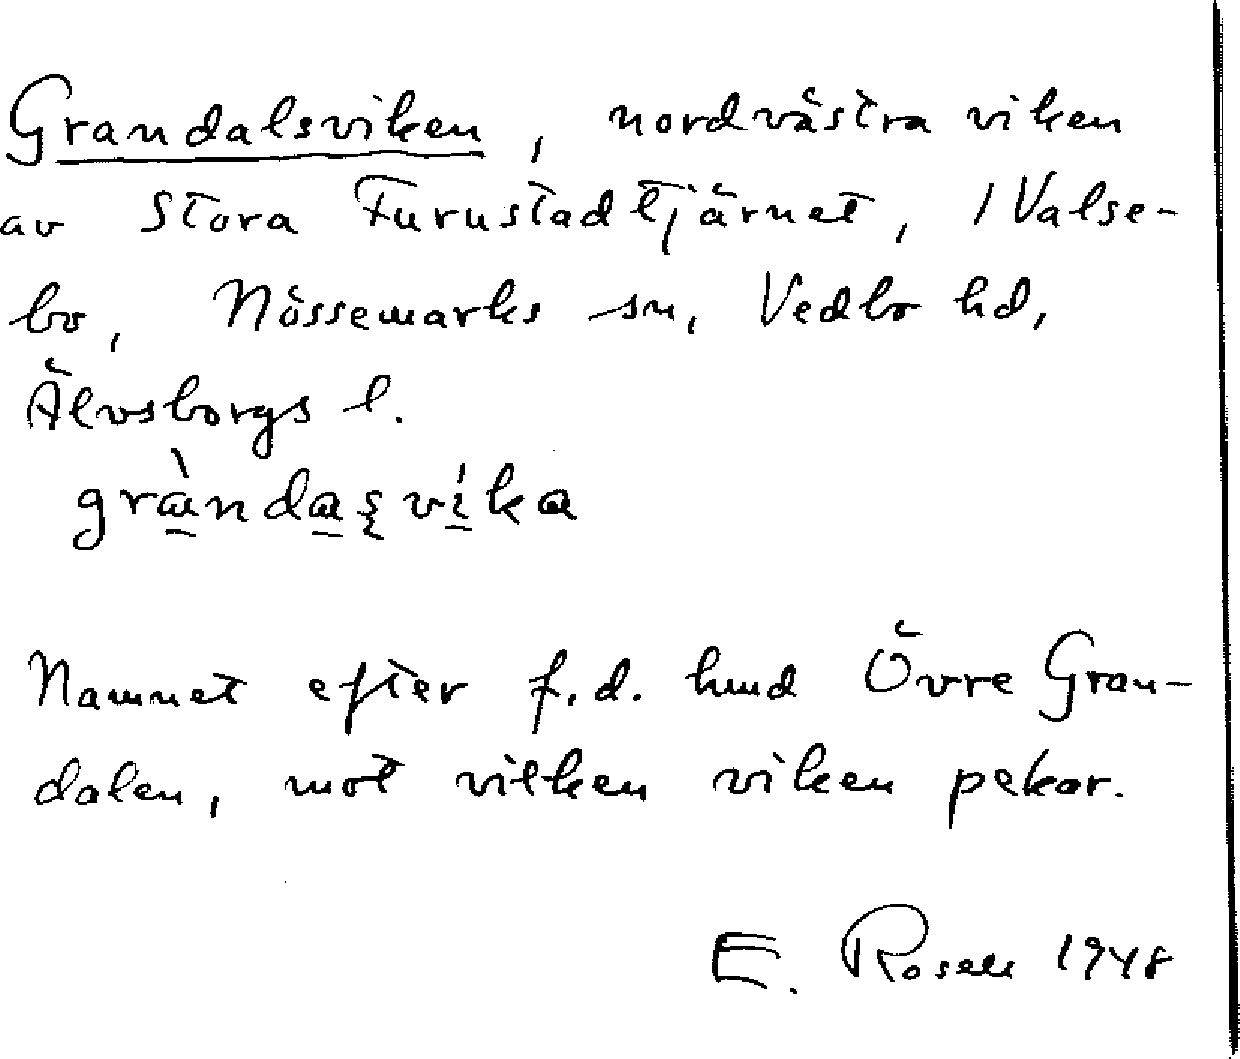 Grandalsviken, nordvästra viken
av Stora Furustadtjärnet, 1 Valse-
bo, Nössemarks sn, Vedbo hd,
Älvsborgs l.
gràndaʂvíka
Namnet efter f.d. hmd Övre Gran-
dalen, mot vilken viken pekar.
E. Rosell 1948